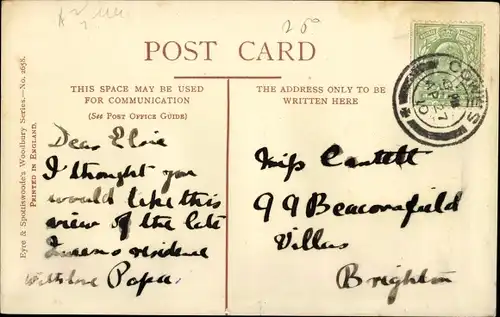 25°
POST CARD
THIS SPACE MAY BE USED
FOR COMMUNICATION
(See Post Office Guide)
THE ADDRESS ONLY TO BE
WRITTEN HERE
Eyre & Spottiswoode's Woodbury Series.—No. 2658.
PRINTED IN ENGLAND.
COWES
AP 27
10
Dear Elsie
I thought you
would like this
view of the late
Queens residence
with love Papa.
Miss Cantell
99 Beaconsfield
Villas
Brighton